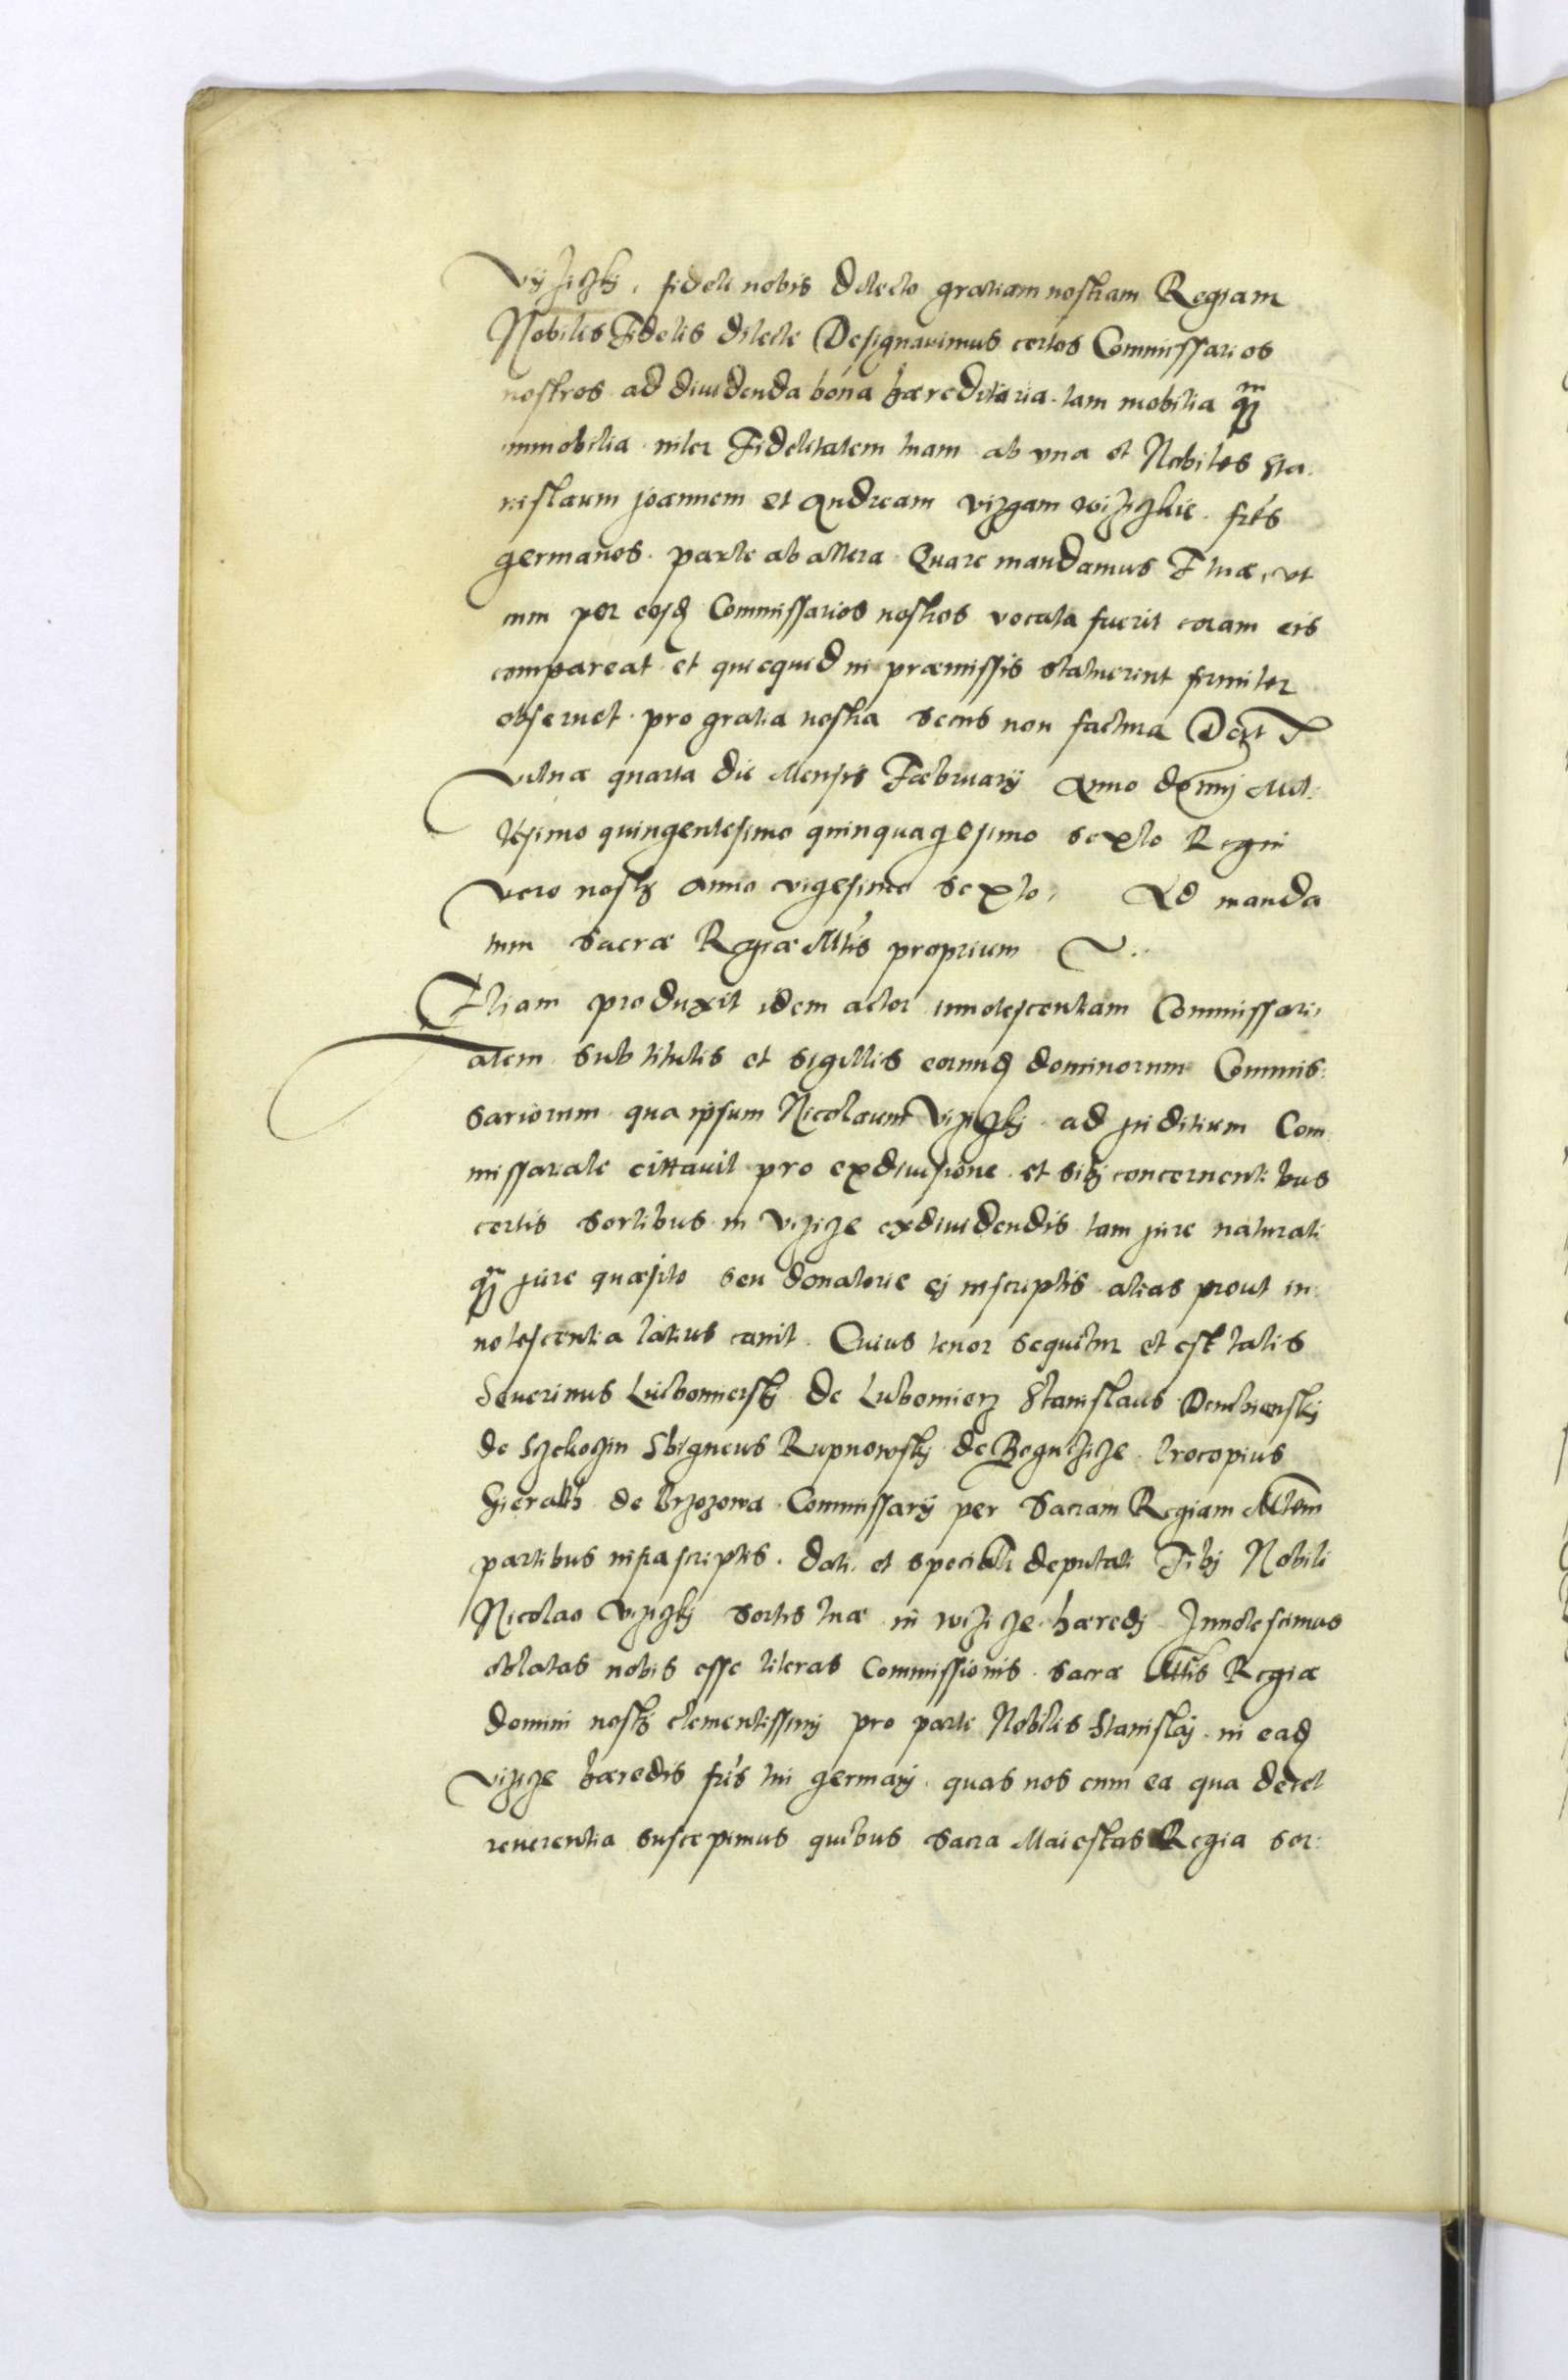 Vijziczkj, fideli nobis dilecto gratiam nostram Regiam
Nobilis Fidelis dilecte Designauimus certos Commissarios
nostros ad diuidenda bona hæreditaria tam mobilia qm̄
immobilia inter Fidelitatem tuam ab vna et Nobiles Sta:
nislaum joannem et Andream vizgam wiziczkie fr̄es
germanos parte ab altera Quare mandamus F tuæ, vt
cum per eosd Commissarios nostros vocata fuerit coram eis
compareat et quicquid in præmissis statuerint firmiter
obseruet pro gratia nostra secus non factura Dat
Vilnæ quarta die Mensis Fæbruarij Anno domnj Mil:
lesimo quingentesimo quinquagesimo sexto Regni
vero nostrj anno vigesimo sexto, Ad manda
tum Sacræ Regiæ Mtis proprium
Etiam produxit idem actor innotescentiam Commissari,
alem sub titulis et sigillis eorund dominorum Commis:
sariorum qua ipsum Nicolaum Viziczkj ad juditium Com
missariale cittauit pro exdiuisione et sibj concernentibus
certis sortibus in Vizicze exdiuidendis tam jure naturali
qm̄ jure quæsito seu donatorie ej inscriptis alias prout in:
notescentia latius canit. Cuius tenor sequitur et est talis
Seuerinus Lubomierskj de Lubomierz Stanislaus Dembienskj
de Szczekoczin Sbigneus Rupnowskj de Beguczicze Procopius
Gieralth de Brzozowa Commissarij per Sacram Regiam Mtem
partibus infrascriptis dati et speciali deputati Tibj Nobili
Nicolao Viziczkj Sortis tuæ in wizicze hæredj Innotescimus
oblatas nobis esse literas Commissionis Sacræ Mtis Regiæ
domini nostrj clementissimj pro parte Nobilis Stanislaj in ead
vizicze hæredis fr̄is tui germanj quas nos cum ea qua decet
reuerentia suscepimus quibus Sacra Maiestas Regia ser: